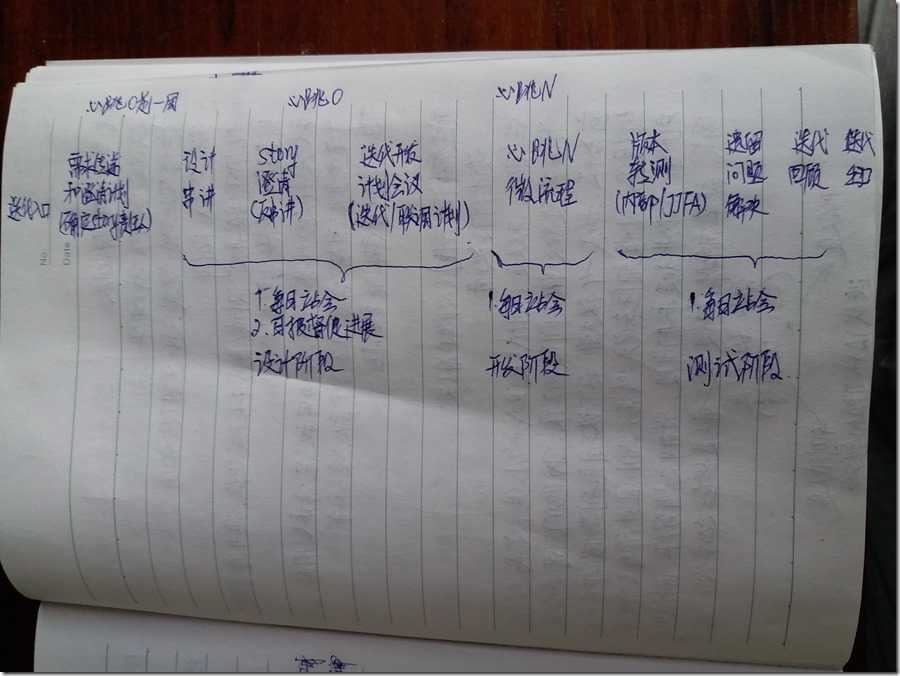 心跳0前一周
心跳0
心跳N
迭代入口
需求宣讲
和澄清计划
(确定story责任人)
设计
串讲
story
澄清
(反串讲)
迭代开发
计划会议
(迭代/联调计划)
心跳N
微流程
版本
转测
(内部/JJFA)
遗留
问题
解决
迭代
回顾
迭代
出口
1. 每日立会
2. 日报督促进展
设计阶段
1. 每日立会
开发阶段
1. 每日立会
测试阶段
No
Date